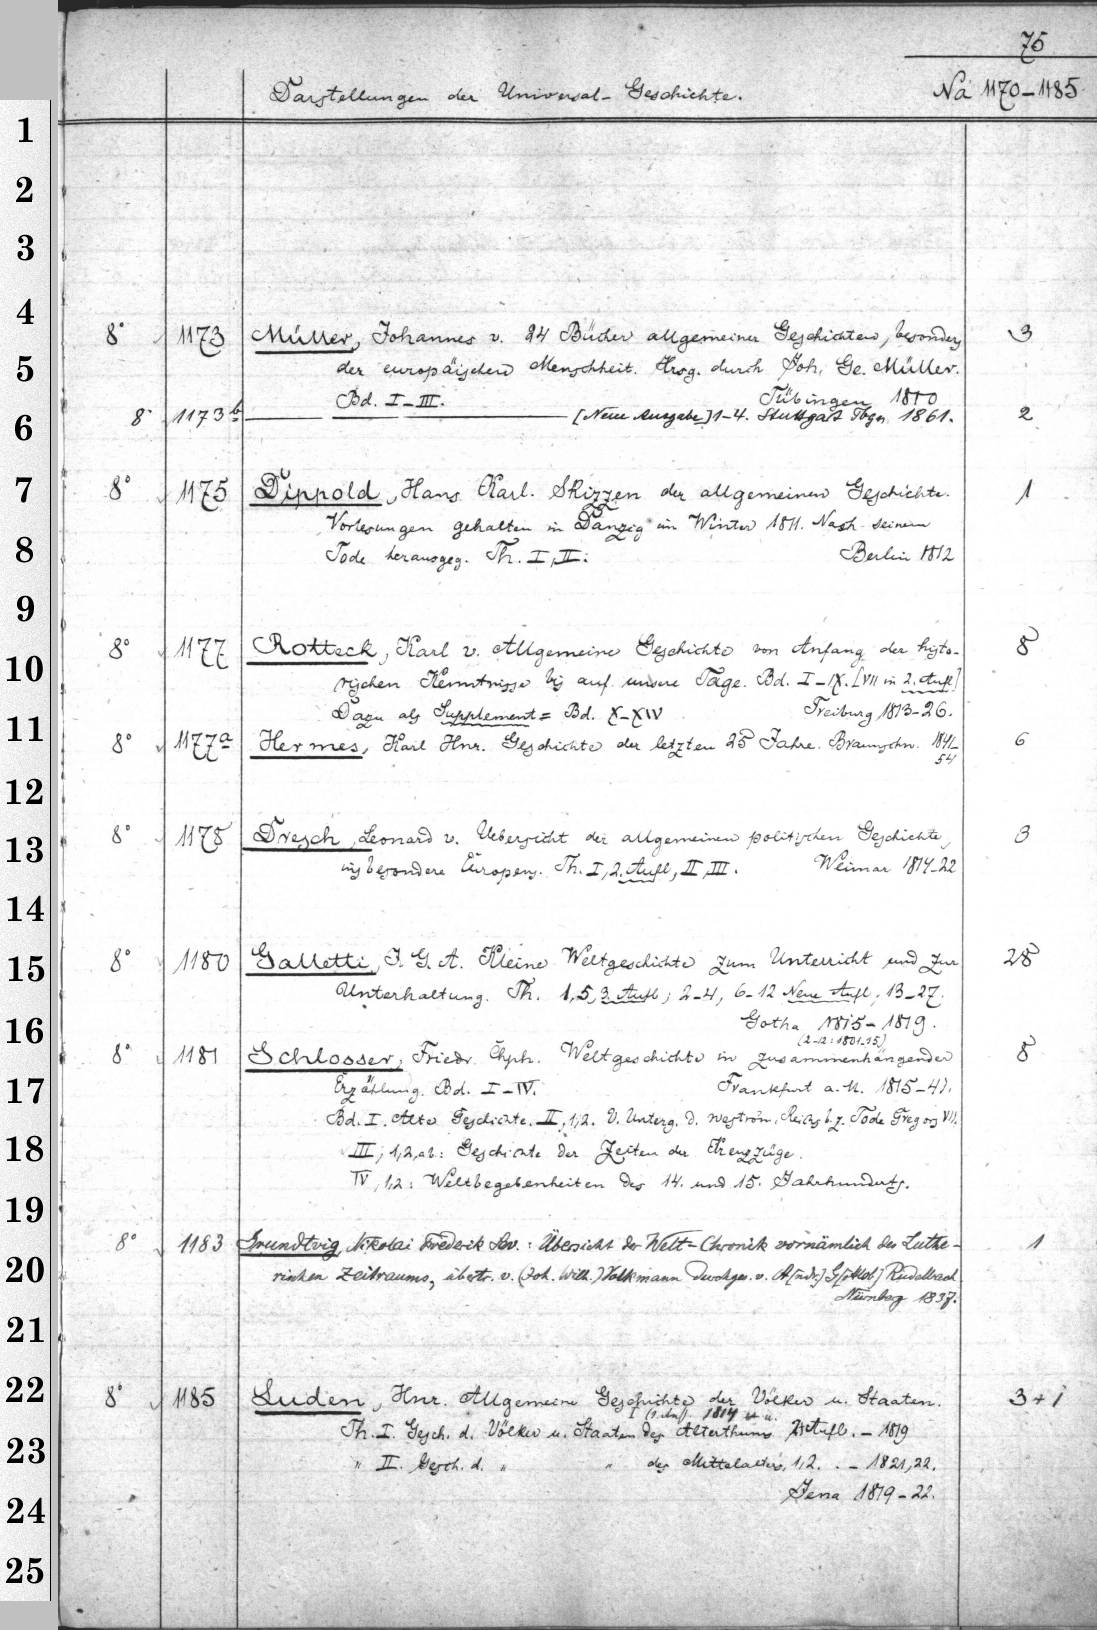 75
Darstellungen der Universal-Geschichte. Na 1170-1185
1
2
3
4
8° 1173 Müller, Johannes v. 24 Bücher allgemeiner Geschichten, besonders 3
5
der europäischen Menschheit. Hrsg. durch Joh. Ge. Müller.
Bd. I-III. Tübingen 1810
6
8° 1173b [Neue Ausgabe] 1-4. Stuttgart Tbgn 1861. 2
7
8° 1175 Dippold, Hans Karl. Skizzen der allgemeinen Geschichte. 1
Vorlesungen gehalten in Danzig im Winter 1811. Nach seinem
8
Tode herausgeg. Th. I, II. Berlin 1812
9
8° 1177 Rotteck, Karl v. Allgemeine Geschichte von Anfang der histo- 8
10
rischen Kenntnisse bis auf unsere Tage. Bd. I-IX. [VII in 2. Aufl]
Dazu als Supplement = Bd. X-XIV Freiburg 1813-26.
11
8° 1177a Hermes, Karl Hnr. Geschichte der letzten 25 Jahre. Braunschw. 1841- 6
54
12
8° 1178 Dresch, Leonard v. Uebersicht der allgemeinen politischen Geschichte, 3
13
insbesondere Europens. Th. I, 2. Aufl, II, III. Weimar 1814-22
14
15
8° 1180 Galletti, J. G. A. Kleine Weltgeschichte zum Unterricht und zur 28
Unterhaltung. Th. 1, 5, 3. Aufl; 2-4, 6-12 Neue Aufl, 13-27.
16
Gotha 1815-1819.
(2-12: 1801-15)
8° 1181 Schlosser, Friedr. Chph. Weltgeschichte in zusammenhängender 8
17
Erzählung. Bd. I-IV. Frankfurt a. M. 1815-41.
Bd. I. Alte Geschichte. II, 1,2. V. Unterg. d. weström. Reichs b. z. Tode Gregors VII.
18
III, 1,2,ab: Geschichte der Zeiten der Kreuzzüge.
IV, 1,2: Weltbegebenheiten des 14. und 15. Jahrhunderts.
19
8° 1183 Grundtvig, Nikolai Frederik Sev.: Übersicht der Welt-Chronik vornämlich des Luthe- 1
20
rischen Zeitraums, übertr. v. (Joh. Wilh.) Volkmann Durchges. v. A[ndr.] G[ottlob] Rudelbach
Nürnberg 1837.
21
22
8° 1185 Luden, Hnr. Allgemeine Geschichte der Völker u. Staaten. 3+1
I (1. Aufl). 1814
Th. I. Gesch. d. Völker u. Staaten des Alterthums 2. Aufl. - 1819
23
" II. Gesch. d. " " des Mittelalters, 1,2. - 1821, 22.
24
Jena 1819-22.
25